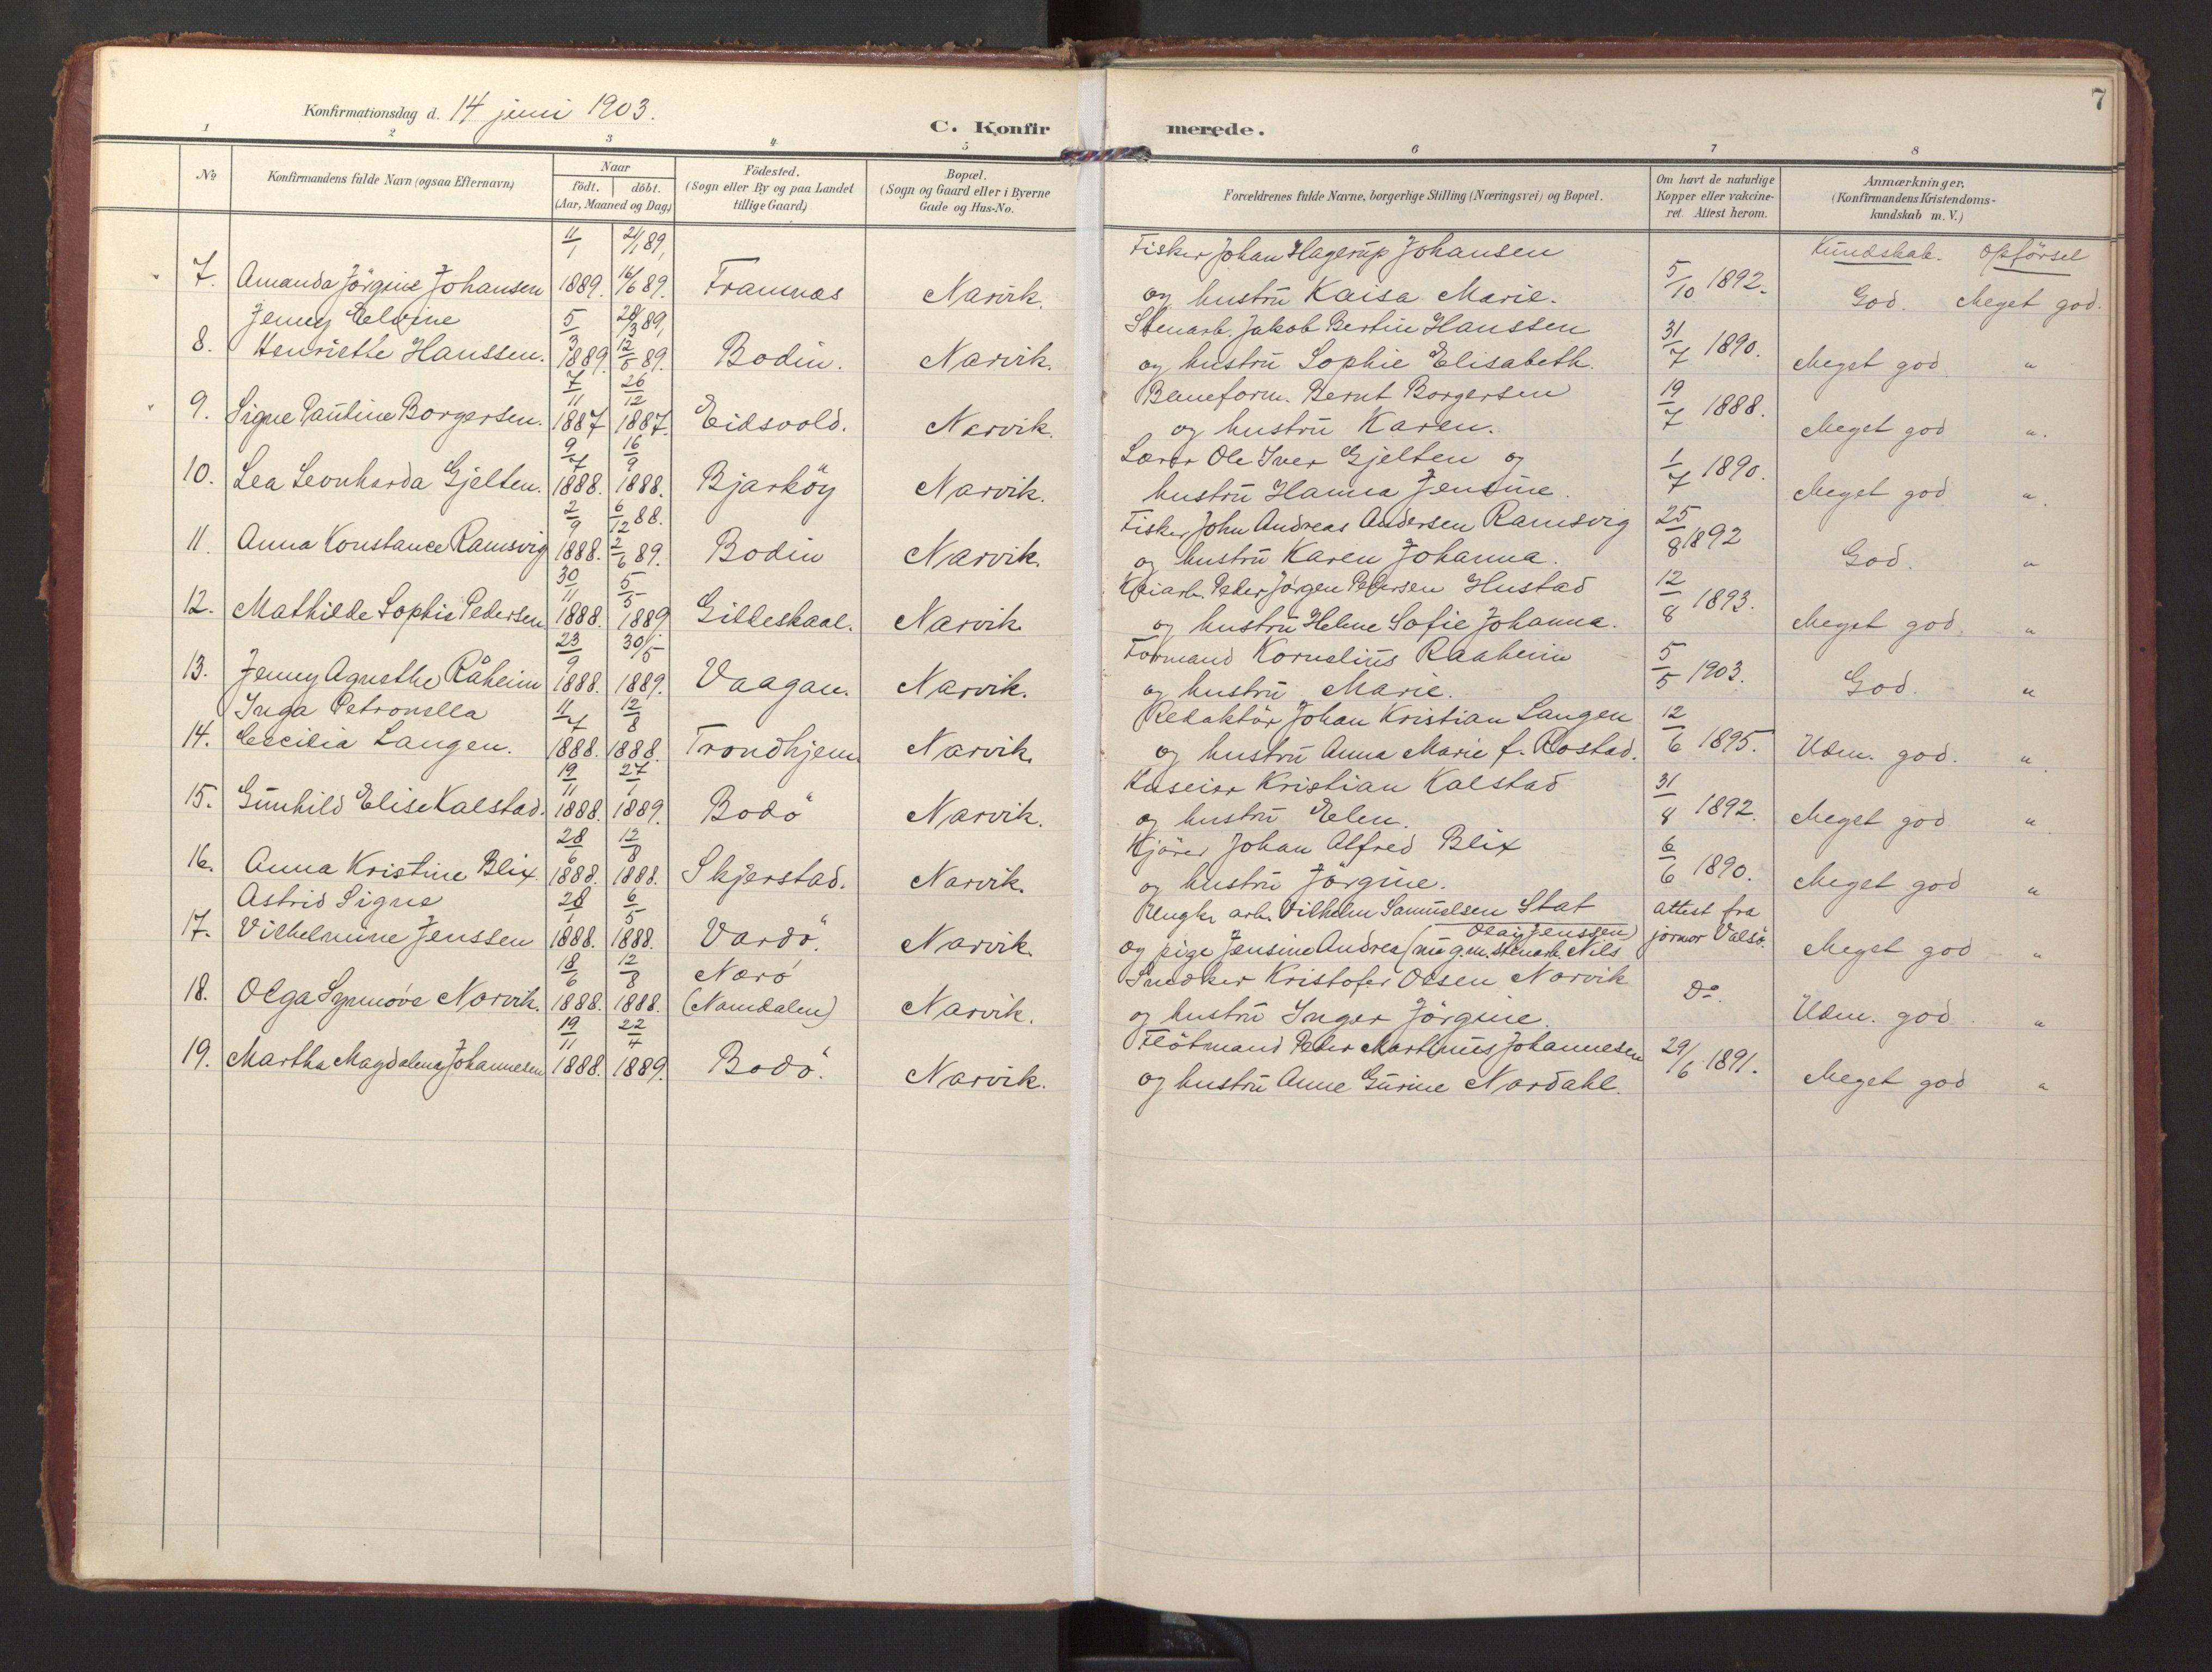 7
Konfirmationsdag d. 14 juni 1903.
C. Konfirmerede.
1 2 3 4 5 6 7 8
No
Konfirmandens fulde Navn (ogsaa Efternavn)
Naar
födt. döbt.
(Aar, Maaned og Dag)
Födested.
(Sogn eller By og paa Landet
tillige Gaard)
Bopæl.
(Sogn og Gaard eller i Byerne
Gade og Hus-No.
Forældrenes fulde Navne, borgerlige Stilling (Næringsvei) og Bopæl.
Om havt de naturlige
Kopper eller vakcine-
ret. Attest herom.
Anmærkninger,
(Konfirmandens Kristendoms-
kundskab m. V.)
Kundskab. Opförsel
11/1 21/1 89, Fisker Johan Hagerup Johansen
7. Amanda Jörgine Johansen 1889. 16/6 89. Framnæs Narvik. og hustru Kaisa Marie. 5/10 1892. God. Meget god.
Jenny Elvine 5/3 28/3 89, Stenarb. Jakob Bertin Hanssen
8. Henriette Hanssen. 1889. 12/5 89. Bodin. Narvik. og hustru Sophie Elisabeth. 31/7 1890. Meget god "
7/11 26/12 Baneform. Bernt Borgersen
9. Signe Pauline Borgersen. 1887 1887. Eidsvold. Narvik. og hustru Karen. 19/7 1888. Meget god "
9/7 16/9 Lærer Ole Iver Gjelten og
10. Lea Leonharda Gjelten. 1888. 1888. Bjarköy Narvik. hustru Hanna Jensine. 1/7 1890. Meget god "
2/9 6/12 88. Fisker John Andreas Andersen Ramsvig
11. Anna Konstance Ramsvig 1888. 2/6 89. Bodin Narvik. og hustru Karen Johanna. 25/8 1892 God. "
30/11 5/5 Kaiarb. Peder Jörgen Pedersen Hustad
12. Mathilde Sophie Pedersen 1888. 1889 Gilleskaal. Narvik og hustru Helene Sofie Johanna. 12/8 1893. Meget god "
23/9 30/5 Formand Kornelius Raaheim
13. Jenny Agnethe Råheim 1888. 1889. Vaagan. Narvik. og hustru Marie. 5/5 1903. God. "
Inga Petronella 11/7 12/8 Redaktör Johan Kristian Langen
14. Cecilia Langen. 1888. 1888. Trondhjem Narvik. og hustru Anna Marie f. Rostad. 12/6 1895. Udm. god. "
19/11 27/1 Huseier Kristian Kalstad
15. Gunhild Elise Kalstad. 1888. 1889. Bodö Narvik. og hustru Elen. 31/8 1892. Meget god "
28/6 12/8 Kjörer Johan Alfred Blix
16. Anna Kristine Blix 1888. 1888. Skjerstad. Narvik. og hustru Jörgine. 6/6 1890. Meget god "
Astrid Signe 28/1 6/5 Ungk. arb. Vilhelm Samuelsen Stat attest fra
17. Vilhelmine Jenssen 1888. 1888. Vardö. Narvik. og pige Jensine Andrea (nu g.m. stenarb. Nils Olaij Jenssen) jormor Valsö. Meget god "
18/6 12/8 Nærö Snedker Kristofer Olsen Narvik
18. Olga Synnöve Narvik. 1888. 1888. (Namdalen) Narvik. og hustru Inger Jörgine. Do. Udm. god "
19/11 22/4 Flötmand Peder Martinus Johannesen
19. Martha Magdalena Johannesen 1888. 1889. Bodö. Narvik. og hustru Anne Gurine Nordahl. 29/6 1891. Meget god "